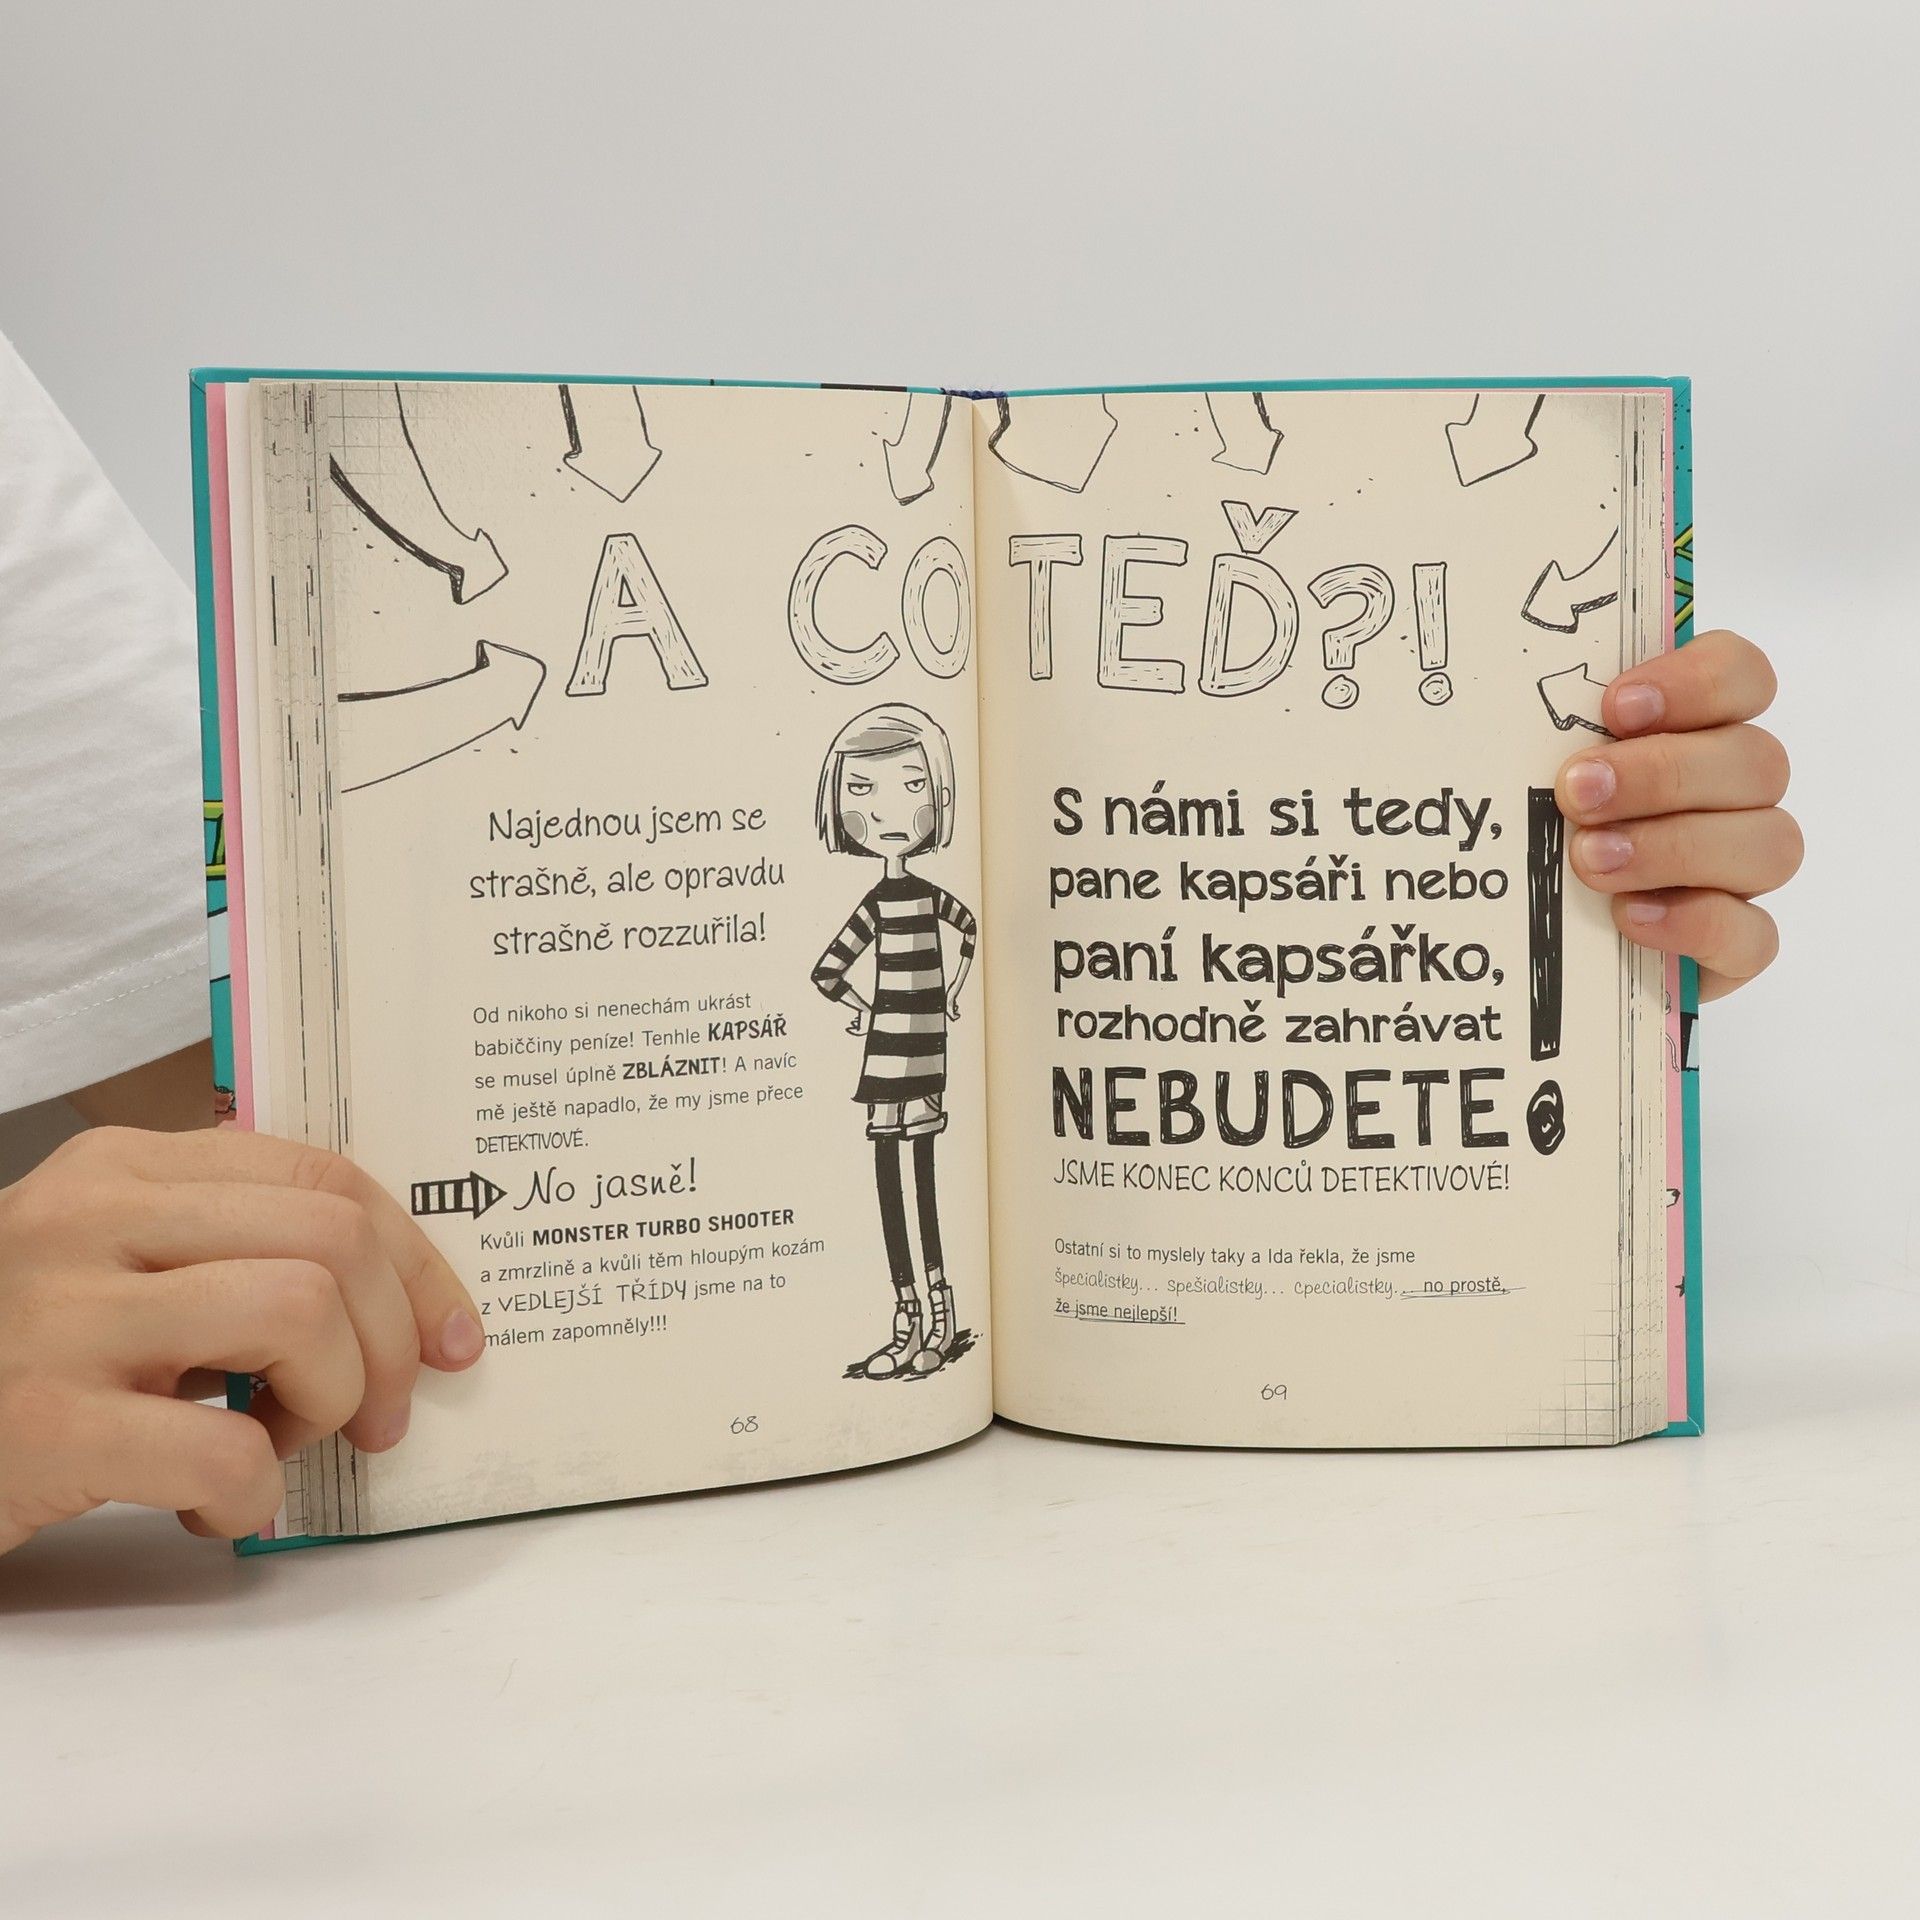 A CO TEĎ?!
Najednou jsem se
strašně, ale opravdu
strašně rozzuřila!
Od nikoho si nenechám ukrást
babiččiny peníze! Tenhle KAPSÁŘ
se musel úplně ZBLÁZNIT! A navíc
mě ještě napadlo, že my jsme přece
DETEKTIVOVÉ.
No jasně!
Kvůli MONSTER TURBO SHOOTER
a zmrzlině a kvůli těm hloupým kozám
z VEDLEJŠÍ TŘÍDY jsme na to
málem zapomněly!!!
68
S námi si tedy,
pane kapsáři nebo
paní kapsářko,
rozhodně zahrávat
NEBUDETE!
JSME KONEC KONCŮ DETEKTIVOVÉ!
Ostatní si to myslely taky a Ida řekla, že jsme
špecialistky... spešialistky... cpecialistky... no prostě,
že jsme nejlepší!
69